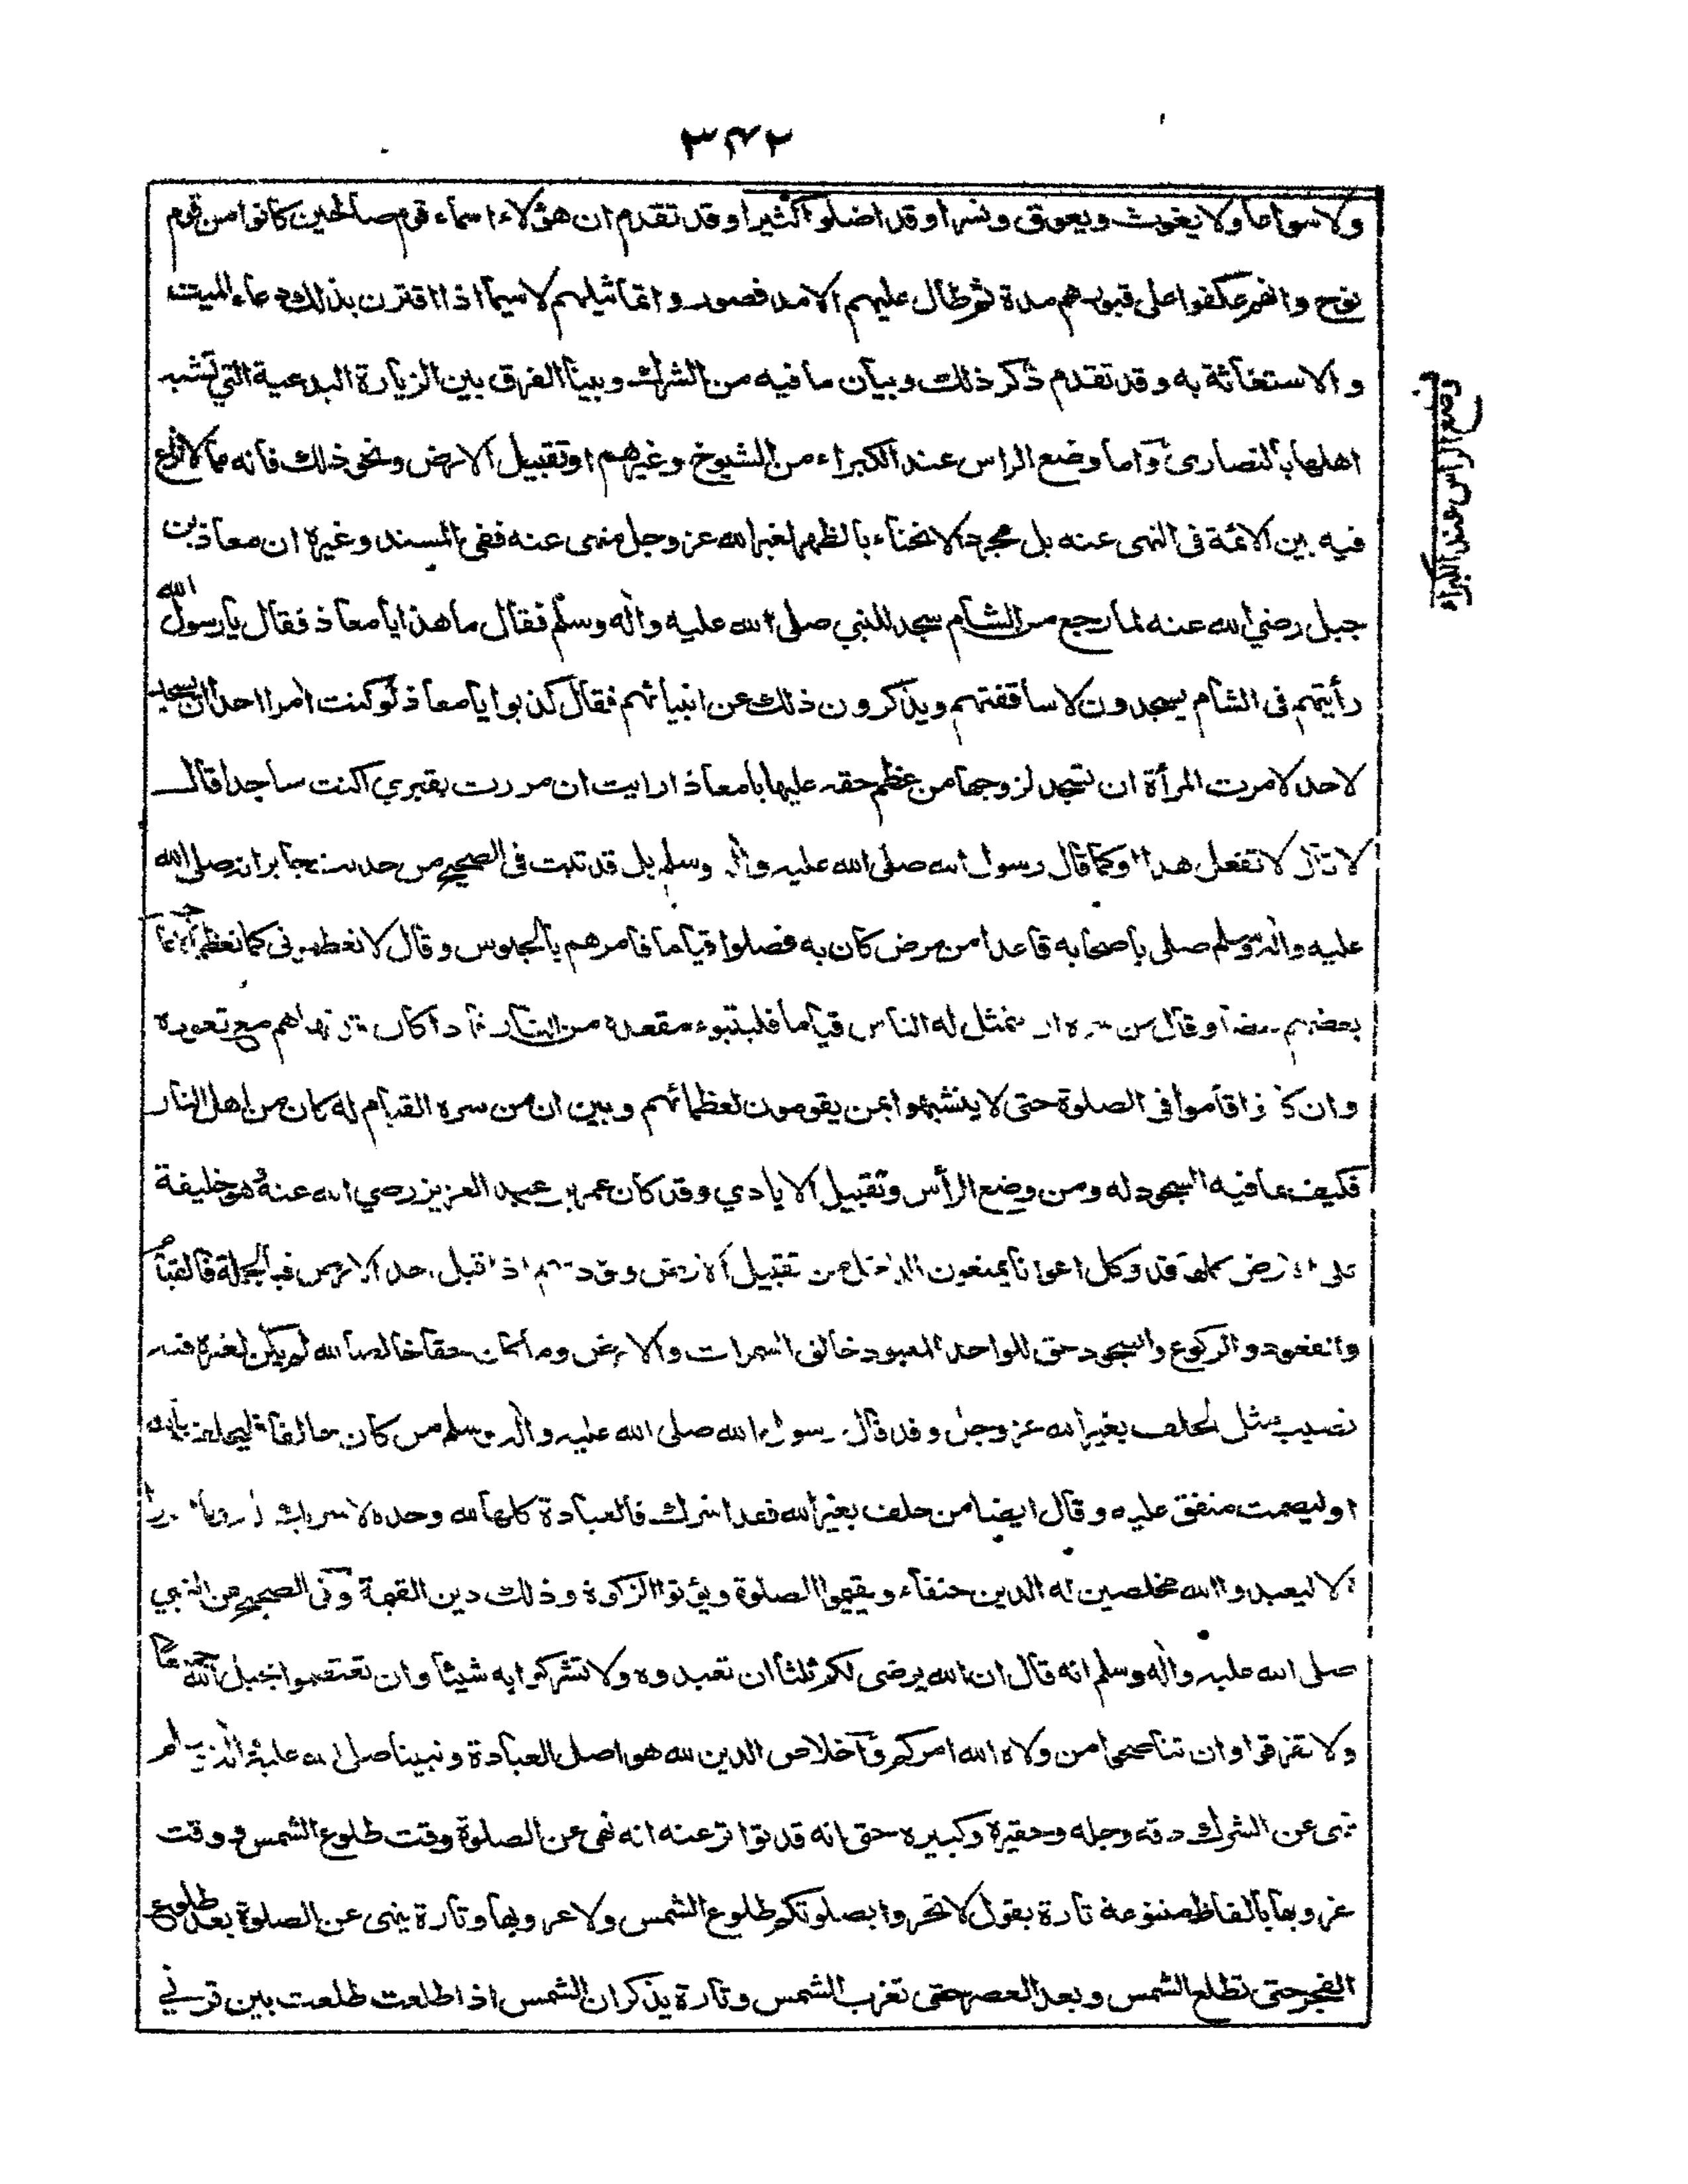 ٣٤٢
ولا سواعا ولا يغوث ويعوق ونسرا وقد اضلوا كثيرا وقد تقدم ان هؤلاء اسماء قوم صالحين كانوا من قوم
نوح وانهم عكفوا على قبورهم مدة ثم طال عليهم الامد فصوروا تماثيلهم لا سيما اذا اقترن بذلك دعاء الميت
والاستغاثة به وقد تقدم ذكر ذلك وبيان ما فيه من الشرك وبينا الفرق بين الزيارة البدعية التي تشبه
اهلها بالنصارى واما وضع الراس عند الكبراء من الشيوخ وغيرهم او تقبيل الارض ونحو ذلك فانه مما لا نزاع
فيه بين الائمة فى النهى عنه بل مجرد الانحناء بالظهر لغير الله عز وجل منهى عنه ففى المسند وغيره ان معاذ بن
جبل رضي الله عنه لما رجع من الشام سجد للنبي صلى الله عليه واله وسلم فقال ما هذا يا معاذ فقال يا رسول الله
رأيتهم فى الشام يسجدون لاساقفتهم ويذكرون ذلك عن انبيائهم فقال كذبوا يا معاذ لو كنت امرا احدا ان يسجد
لاحد لامرت المرأة ان تسجد لزوجها من عظم حقه عليها يا معاذ ارايت ان مررت بقبري اكنت ساجدا قال
لا قال لا تفعل هذا او كما قال رسول الله صلى الله عليه واله وسلم بل قد ثبت فى الصحيح من حديث جابر انه صلى الله
عليه واله وسلم صلى باصحابه قاعدا من مرض كان به فصلوا قياما فامرهم بالجلوس وقال لا تعظموني كما تعظم الاعاجم
بعضهم بعضا وقال من سره ان يتمثل له الناس قياما فليتبوء مقعده من النار فاذا كان قد نهاهم مع قعوده
وان كانوا قاموا فى الصلوة حتى لا يتشبهوا بمن يقومون لعظمائهم وبين ان من سره القيام له كان من اهل النار
فكيف بما فيه السجود له ومن وضع الرأس وتقبيل الايادي وقد كان عمر بن عبد العزيز رضي الله عنه وهو خليفة
على الارض كلها قد وكل اعوانا يمنعون الداخل من تقبيل الارض اذا قبل احد الارض فبالجملة فالقيام
والقعود والركوع والسجود حق للواحد المعبود خالق السموات والارض وما كان حقا خالصا لله لم يكن لغيره فيه
نصيب مثل الحلف بغير الله عز وجل وقد قال رسول الله صلى الله عليه واله وسلم من كان حالفا فليحلف بالله
او ليصمت متفق عليه وقال ايضا من حلف بغير الله فقد اشرك فالعبادة كلها لله وحده لا شريك له وما امروا
الا ليعبدوا الله مخلصين له الدين حنفاء ويقيموا الصلوة ويؤتوا الزكوة وذلك دين القيمة وفى الصحيح عن النبي
صلى الله عليه واله وسلم انه قال ان الله يرضى لكم ثلثا ان تعبدوه ولا تشركوا به شيئا وان تعتصموا بحبل الله جميعا
ولا تفرقوا وان تناصحوا من ولاه الله امركم واخلاص الدين لله هو اصل العبادة ونبينا صلى الله عليه واله وسلم
نهى عن الشرك دقه وجله وحقيره وكبيره حتى انه قد تواتر عنه انه نهى عن الصلوة وقت طلوع الشمس ووقت
غروبها بالفاظ متنوعة تارة يقول لا تحروا بصلوتكم طلوع الشمس ولا غروبها وتارة ينهى عن الصلوة بعد طلوع
الفجر حتى تطلع الشمس وبعد العصر حتى تغرب الشمس وتارة يذكر ان الشمس اذا طلعت طلعت بين قرني
وضع الراس عند الكبراء